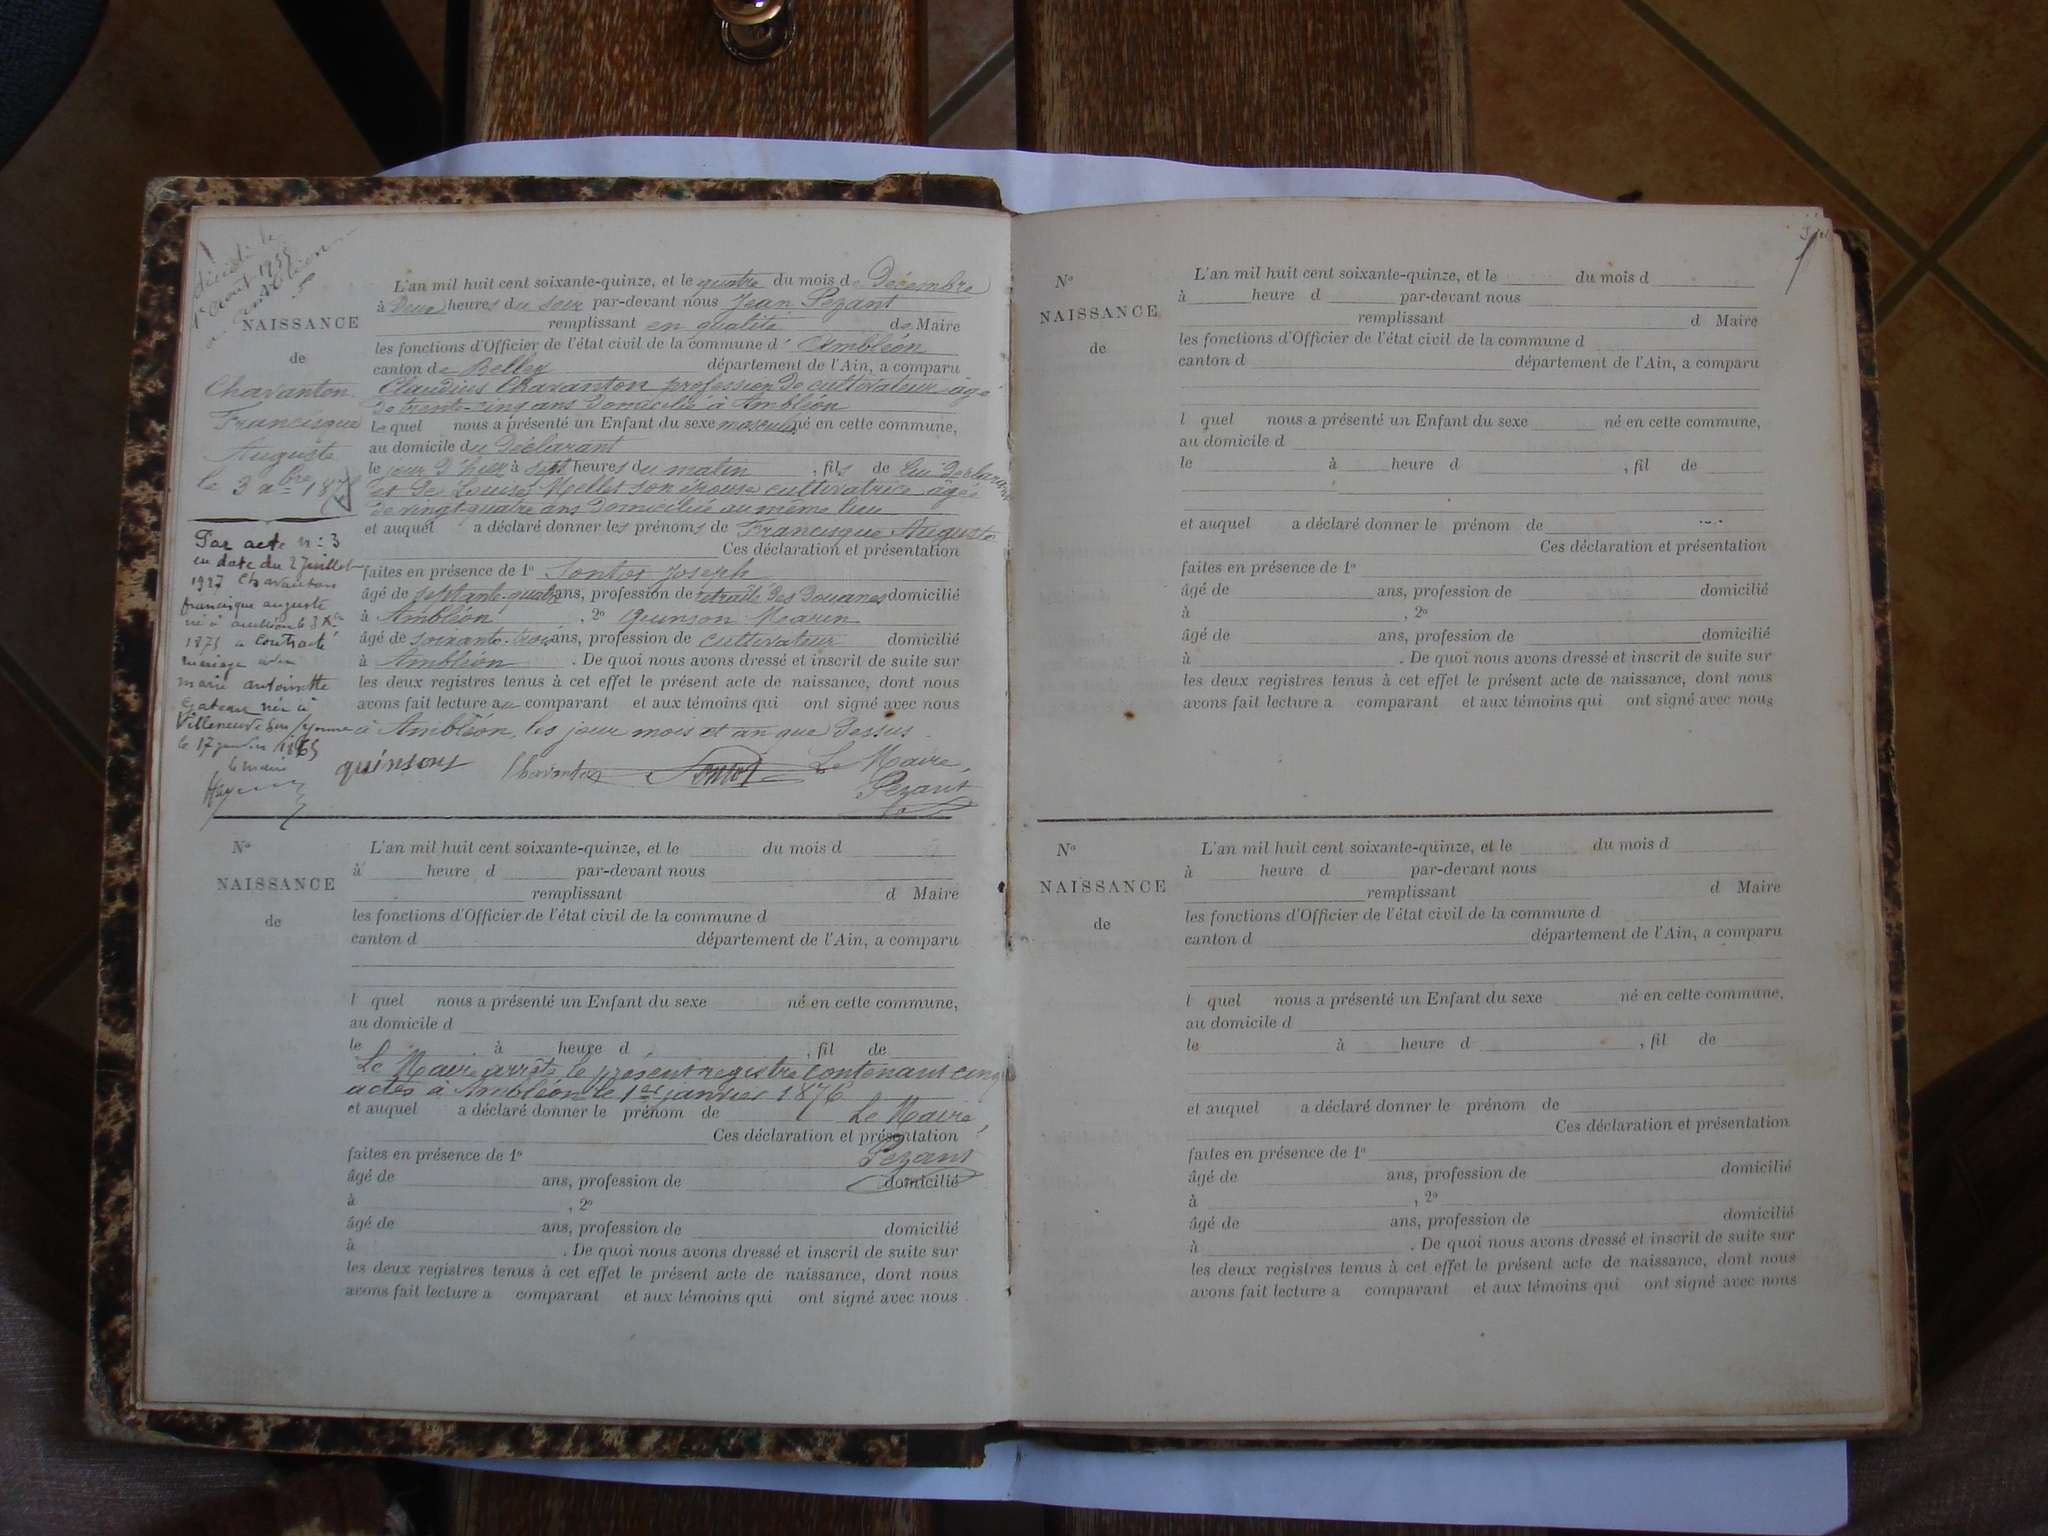 décédé le
1er août 1955
à Ambléon
NAISSANCE
de
Chavanton
Francisque
Auguste
le 3 Xbre 1875
Par acte n: 3
en date du 2 Juillet
1927 Chavanton
francisque auguste
né à ambléon le 3 Xbre
1875 a contracté
mariage avec
marie antoinette
Gateau née à
Villeneuve sur Yonne
le 17 janvier
le maire
L'an mil huit cent soixante-quinze, et le quatre du mois de Décembre
à Deux heures du soir par-devant nous Jean Pezant
remplissant en qualité de Maire
les fonctions d'Officier de l'état civil de la commune d' Ambléon
canton de Belley département de l'Ain, a comparu
Claudius Chavanton profession de cultivateur âgé
de trente-cinq ans domicilié à Ambléon
le quel nous a présenté un Enfant du sexe masculin né en cette commune,
au domicile du Déclarant
le jour d'hier à sept heures du matin , fils de lui déclarant
et de Louise Mellet son épouse cultivatrice âgée
de vingt-quatre ans domiciliée au même lieu
et auquel a déclaré donner les prénoms de Francisque Auguste
Ces déclaration et présentation
faites en présence de 1° Joseph
âgé de septante-quatre ans, profession de retraité des Douanes domicilié
à Ambléon , 2° Quinson Marin
âgé de soixante-trois ans, profession de cultivateur domicilié
à Ambléon . De quoi nous avons dressé et inscrit de suite sur
les deux registres tenus à cet effet le présent acte de naissance, dont nous
avons fait lecture au comparant et aux témoins qui ont signé avec nous
à Ambléon, les jour mois et an que dessus.
quinson Chavanton Le Maire,
Pezant
N°
NAISSANCE
de
L'an mil huit cent soixante-quinze, et le du mois d
à heure d par-devant nous
remplissant d Maire
les fonctions d'Officier de l'état civil de la commune d
canton d département de l'Ain, a comparu
l quel nous a présenté un Enfant du sexe né en cette commune,
au domicile d
le à heure d , fil de
Le Maire arrête le présent registre contenant cinq
actes à Ambléon le 1er janvier 1876
et auquel a déclaré donner le prénom de Le Maire,
Ces déclaration et présentation
faites en présence de 1° Pezant
âgé de ans, profession de domicilié
à , 2°
âgé de ans, profession de domicilié
à . De quoi nous avons dressé et inscrit de suite sur
les deux registres tenus à cet effet le présent acte de naissance, dont nous
avons fait lecture a comparant et aux témoins qui ont signé avec nous.
N°
NAISSANCE
de
L'an mil huit cent soixante-quinze, et le du mois d
à heure d par-devant nous
remplissant d Maire
les fonctions d'Officier de l'état civil de la commune d
canton d département de l'Ain, a comparu
l quel nous a présenté un Enfant du sexe né en cette commune,
au domicile d
le à heure d , fil de
et auquel a déclaré donner le prénom de
Ces déclaration et présentation
faites en présence de 1°
âgé de ans, profession de domicilié
à , 2°
âgé de ans, profession de domicilié
à . De quoi nous avons dressé et inscrit de suite sur
les deux registres tenus à cet effet le présent acte de naissance, dont nous
avons fait lecture a comparant et aux témoins qui ont signé avec nous
N°
NAISSANCE
de
L'an mil huit cent soixante-quinze, et le du mois d
à heure d par-devant nous
remplissant d Maire
les fonctions d'Officier de l'état civil de la commune d
canton d département de l'Ain, a comparu
l quel nous a présenté un Enfant du sexe né en cette commune,
au domicile d
le à heure d , fil de
et auquel a déclaré donner le prénom de
Ces déclaration et présentation
faites en présence de 1°
âgé de ans, profession de domicilié
à , 2°
âgé de ans, profession de domicilié
à . De quoi nous avons dressé et inscrit de suite sur
les deux registres tenus à cet effet le présent acte de naissance, dont nous
avons fait lecture a comparant et aux témoins qui ont signé avec nous